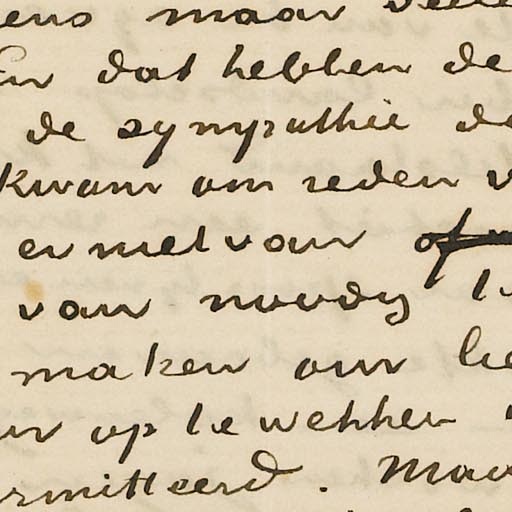 ens maar veele
En dat hebben de
de sympathie de
kwam om reden v
er niet van
van noodig te
maken om he
op te wekken
rmitteerd. Maa